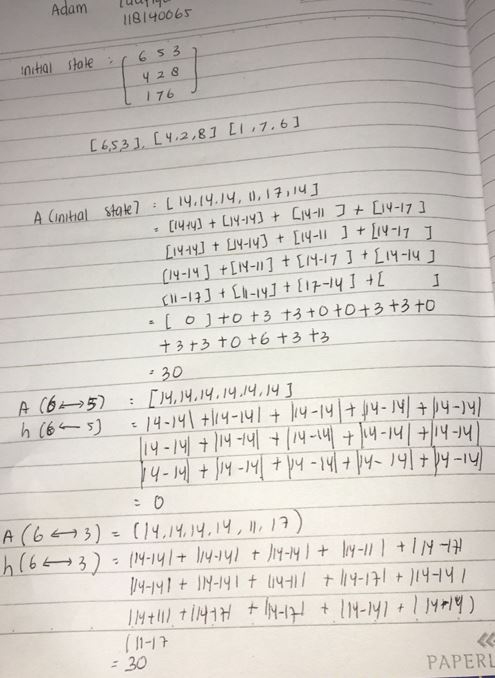 Adam
118140065
initial state : [ 6 5 3
4 2 8
1 7 6 ]
[6,5,3], [4,2,8] [1,7,6]
A (initial state) : [14,14,14, 11, 17, 14]
= [14+4] + [14-14] + [14-11] + [14-17]
[14+4] + [14-14] + [14-11] + [14-17]
[14-14] + [14-11] + [14-17] + [14-14]
[11-17] + [11-14] + [17-14] + [ ]
= [0] + 0 + 3 + 3 + 0 + 0 + 3 + 3 + 0
+ 3 + 3 + 0 + 6 + 3 + 3
= 30
A (6 ↔ 5) : [14,14,14,14,14,14]
h (6 ← 5) = |14-14| + |14-14| + |14-14| + |14-14| + |14-14|
|14-14| + |14-14| + |14-14| + |14-14| + |14-14|
|14-14| + |14-14| + |14-14| + |14-14| + |14-14|
= 0
A (6 ↔ 3) = (14,14,14,14, 11, 17)
h (6 ↔ 3) = |14-14| + |14-14| + |14-14| + |14-11| + |14-17|
|14-14| + |14-14| + |14-11| + |14-17| + |14-14|
|14+11| + |14+7| + |14-17| + |14-14| + |14+14|
|11-17
= 30
PAPERL